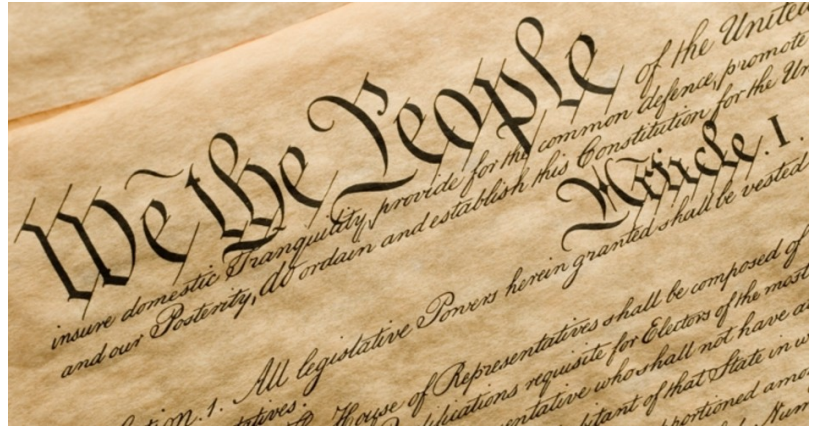 We the People of the United
insure domestic Tranquility, provide for the common defence, promote
and our Posterity, do ordain and establish this Constitution for the Un
Article. I.
ction. 1. All legislative Powers herein granted shall be vested
tatives.
House of Representatives shall be composed of
lifications requisite for Electors of the most
entative who shall not have a
bitant of that State in w
portioned amo
Num